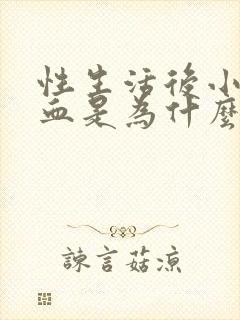 性生活後小
血是為什麼
諫言菇涼